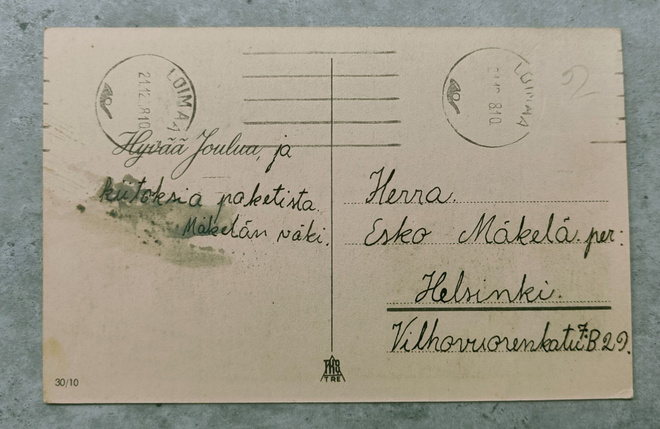 LOIMAA
21.12. 810.
LOIMAA
21.12. 810.
Hyvää Joulua, ja
kiitoksia paketista.
Mäkelän väki.
Herra.
Esko Mäkelä. per:
Helsinki.
Vilhovuorenkatu 7. B 29.
30/10
TRE